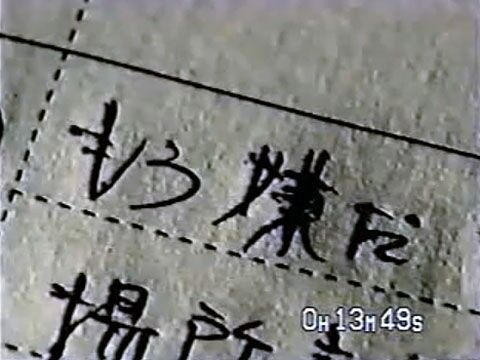 もう嫌だ
場所を
0H13M49s